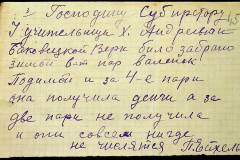 Господину Субиректору
У учительници Х. Андреевой
Баковецкой Веры было забрано
зимой 6 пар валенок
Подимби и за 4-е пари
она получила денги а за
две пари не получила
и они совсем нигде
не числятся